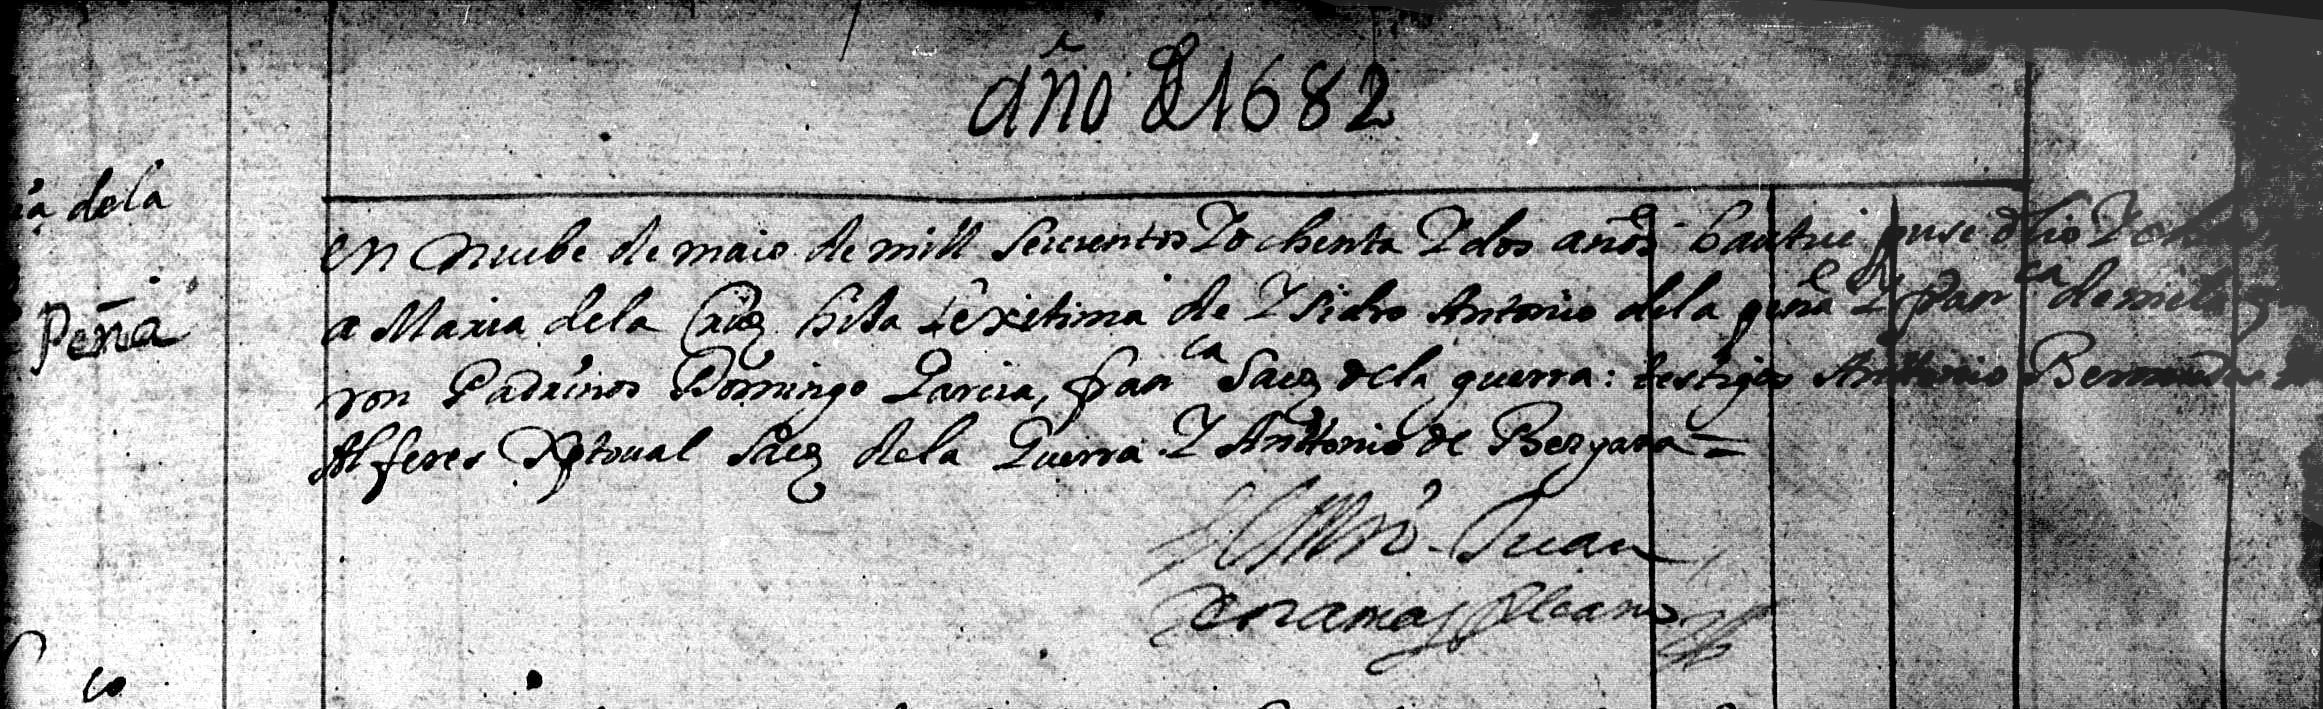 año de 1682
dela
Peña
en nuebe de maio de mill seiscientos Y ochenta Y dos años bautise puse olio Y
a Maria dela Cruz hija lexitima de Ysidro Antonio dela peña Y franca de
ron Padrinos Domingo Garcia, franca Saez dela guerra: testigos Antonio Bermudes
Alferes Xptoual Saez dela Guerra Y Anttonio de Bergara =
Juan
co